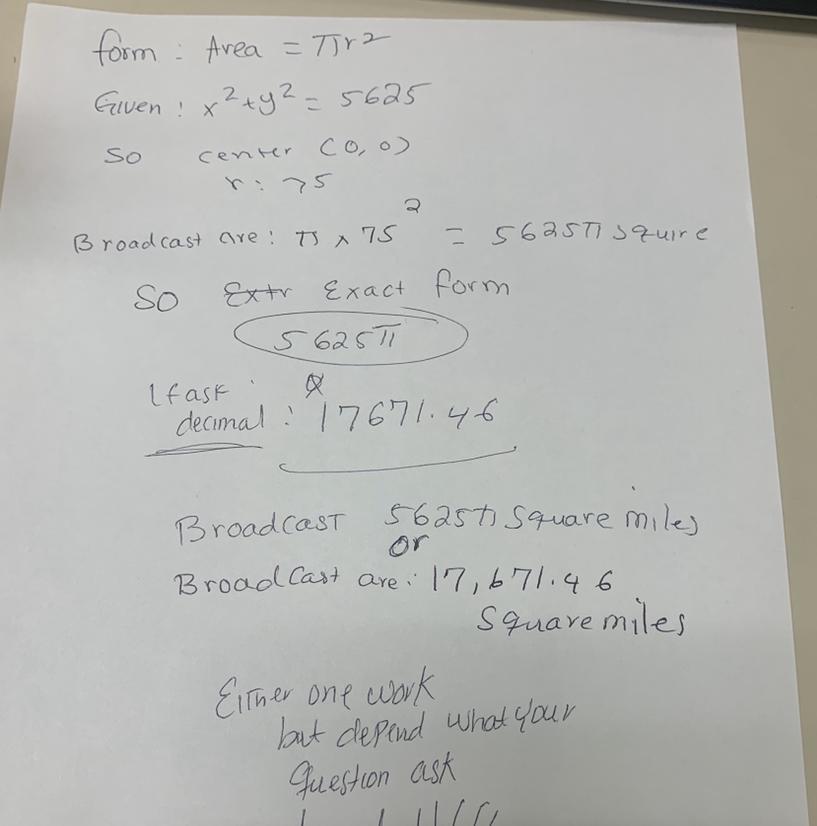 form : Area = πr²
Given : x²+y² = 5625
So center (0,0)
r : 75
Broadcast are : π x 75² = 5625π squire
So Extr Exact form
5625π
If ask
decimal : 17671.46
Broadcast 5625π Square miles
or
Broadcast are : 17,671.46
Square miles
Either one work
but depend what your
question ask